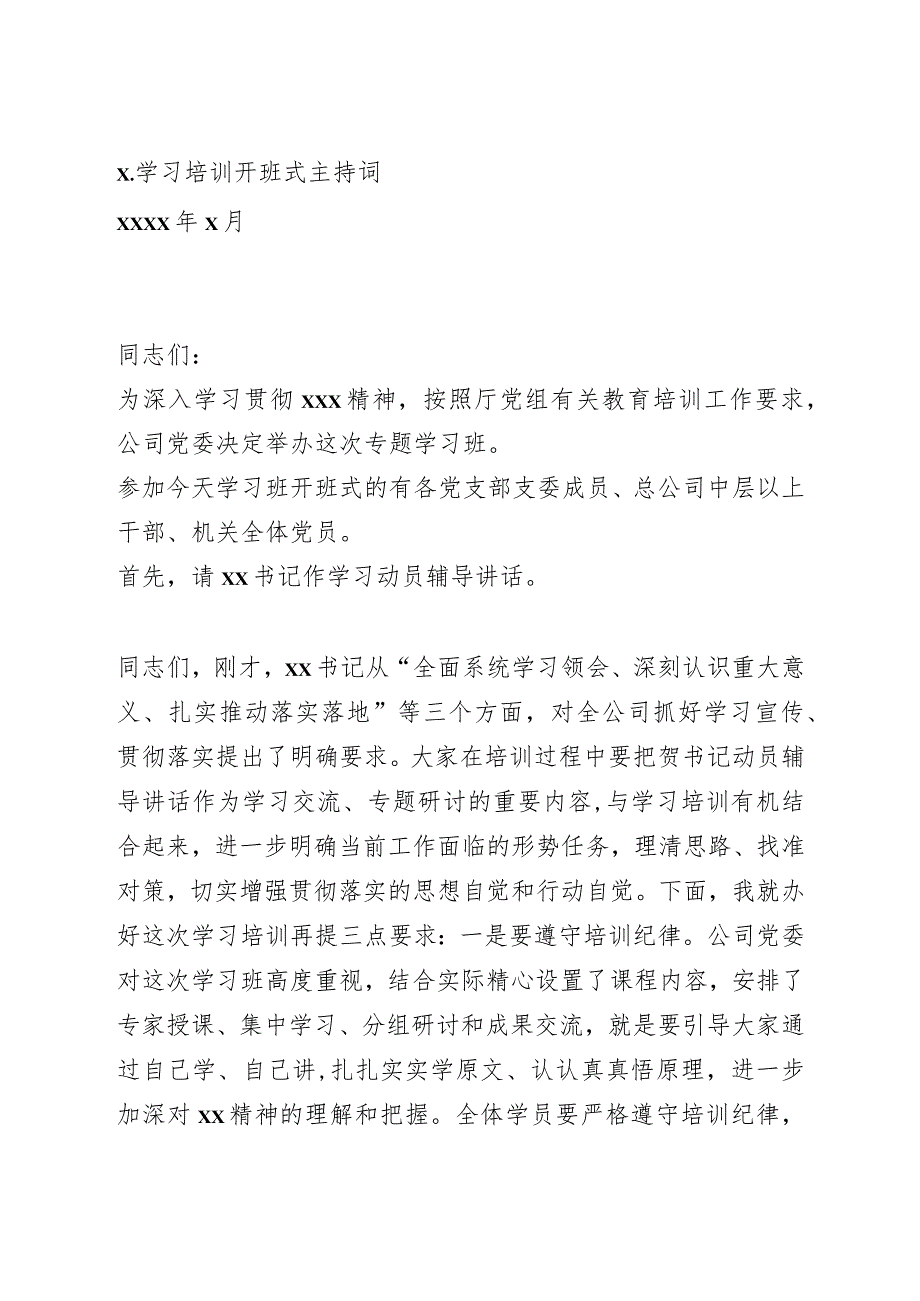 x.学习培训开班式主持词
xxxx 年 x 月
同志们：
为深入学习贯彻 xxx 精神，按照厅党组有关教育培训工作要求，
公司党委决定举办这次专题学习班。
参加今天学习班开班式的有各党支部支委成员、总公司中层以上
干部、机关全体党员。
首先，请 xx 书记作学习动员辅导讲话。
同志们，刚才，xx 书记从“全面系统学习领会、深刻认识重大意
义、扎实推动落实落地”等三个方面，对全公司抓好学习宣传、
贯彻落实提出了明确要求。大家在培训过程中要把贺书记动员辅
导讲话作为学习交流、专题研讨的重要内容,与学习培训有机结
合起来，进一步明确当前工作面临的形势任务，理清思路、找准
对策，切实增强贯彻落实的思想自觉和行动自觉。下面，我就办
好这次学习培训再提三点要求：一是要遵守培训纪律。公司党委
对这次学习班高度重视，结合实际精心设置了课程内容，安排了
专家授课、集中学习、分组研讨和成果交流，就是要引导大家通
过自己学、自己讲,扎扎实实学原文、认认真真悟原理，进一步
加深对 xx 精神的理解和把握。全体学员要严格遵守培训纪律，